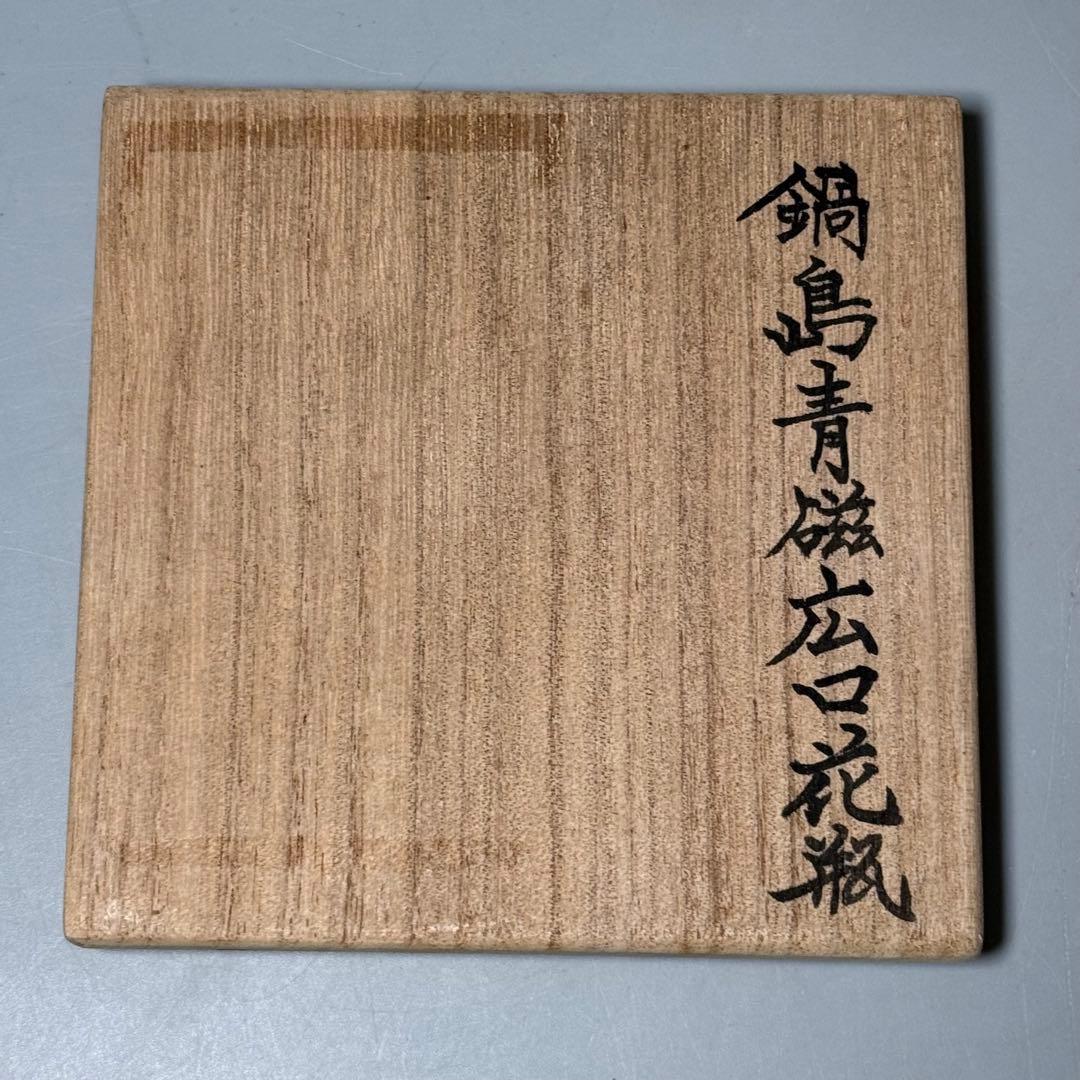 鍋島青磁広口花瓶